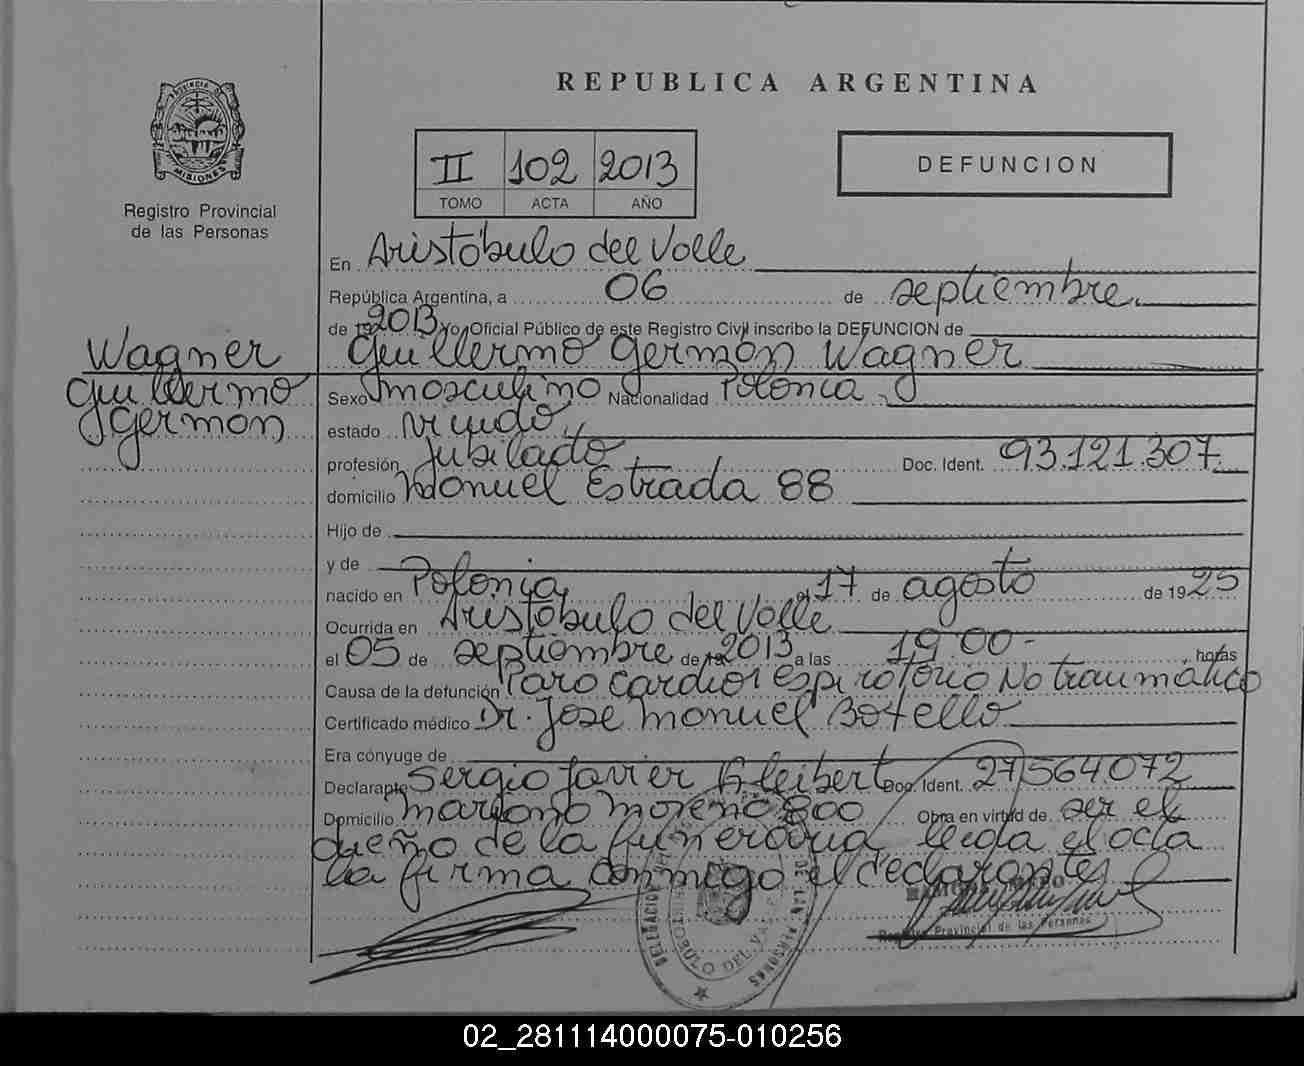 REPUBLICA ARGENTINA
PROVINCIA DE MISIONES
Registro Provincial
de las Personas
II 102 2013
TOMO ACTA AÑO
DEFUNCION
En Aristóbulo del Valle
República Argentina, a 06 de septiembre.
de 2013 yo, Oficial Público de este Registro Civil inscribo la DEFUNCION de
Wagner
Guillermo
Germán
Guillermo Germán Wagner
Sexo masculino Nacionalidad Polonia.
estado viudo.
profesión Jubilado Doc. Ident. 93.121.307
domicilio Manuel Estrada 88
Hijo de
y de
nacido en Polonia, el 17 de agosto de 1925
Ocurrida en Aristóbulo del Valle
el 05 de septiembre de 2013 a las 19 00 - horas
Causa de la defunción Paro cardiorespiratorio No traumático
Certificado médico Dr. José Manuel Botello
Era cónyuge de
Declarante Sergio Javier Doc. Ident. 27564072
Domicilio Mariano Moreno 800 Obra en virtud de ser el
dueño de la funeraria, leída el acta
la firma conmigo el declarante
DELEGACION
ARISTOBULO DEL VALLE
DE LAS PERSONAS
Registro Provincial de las Personas
02_281114000075-010256